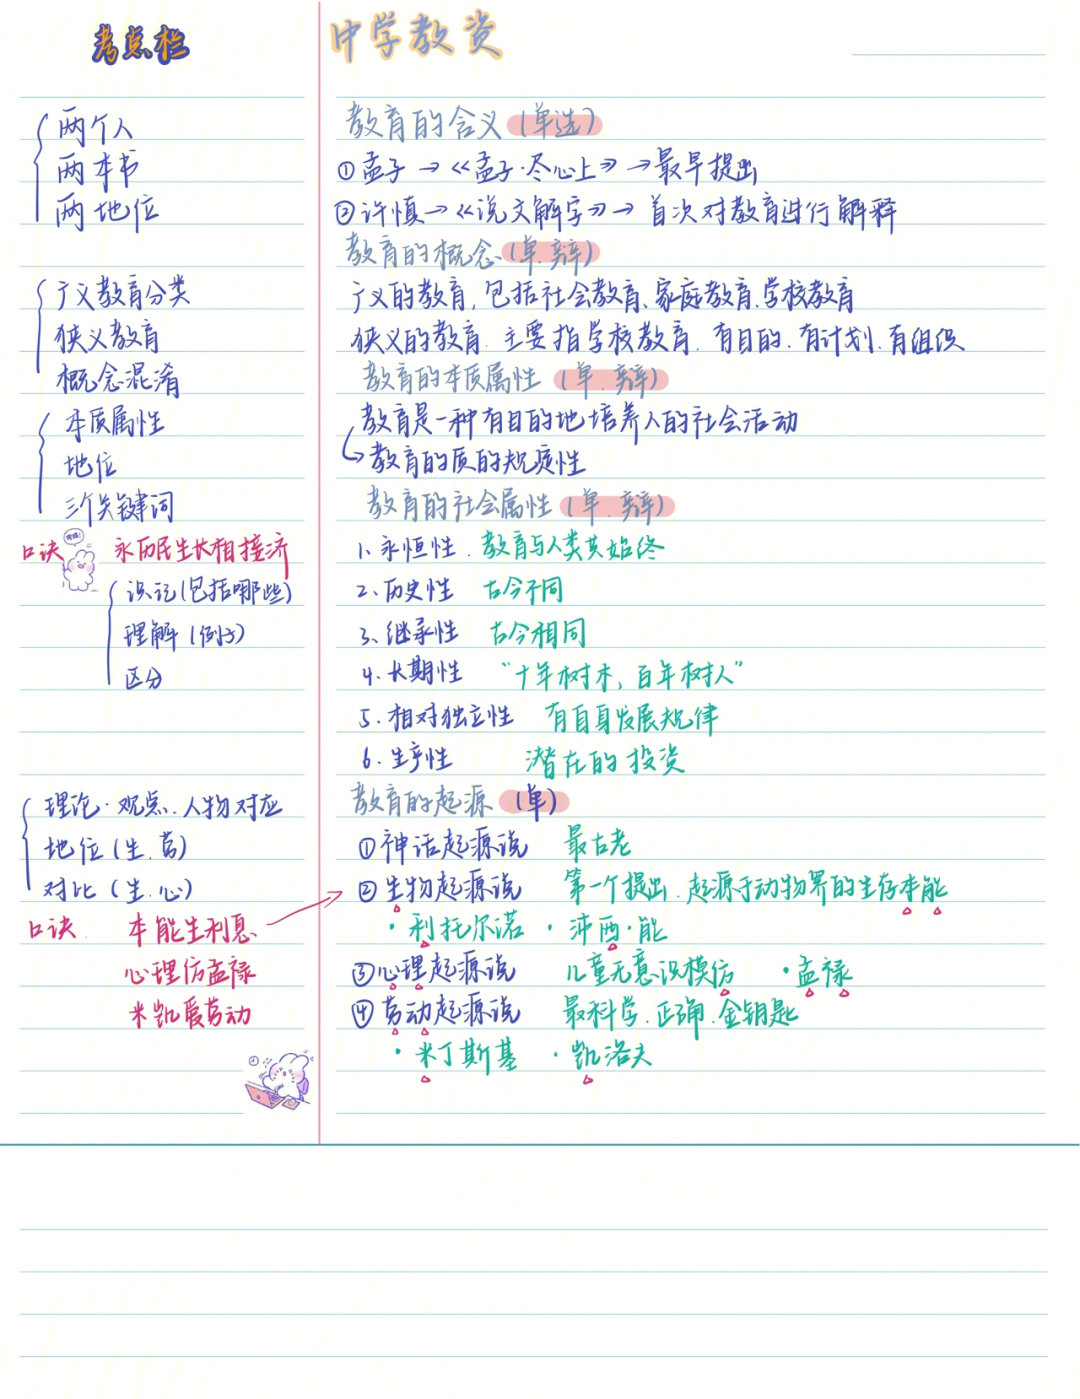 考点栏
中学教资
两个人
两本书
两地位
教育的含义(单选)
①孟子→《孟子·尽心上》→最早提出
②许慎→《说文解字》→首次对教育进行解释
教育的概念(单.辨)
广义教育分类
狭义教育
概念混淆
广义的教育,包括社会教育、家庭教育.学校教育
狭义的教育.主要指学校教育.有目的.有计划.有组织
教育的本质属性(单.辨)
本质属性
地位
三个关键词
教育是一种有目的地培养人的社会活动
教育的质的规定性
教育的社会属性(单.辨)
口诀 永历民生长相接济
识记(包括哪些)
理解(例子)
区分
1、永恒性.教育与人类共始终
2、历史性 古今不同
3、继承性 古今相同
4.长期性 “十年树木,百年树人”
5.相对独立性 有自身发展规律
6.生产性 潜在的投资
教育的起源(单)
理论·观点.人物对应
地位(生.劳)
对比(生.心)
口诀 本能生利息
心理仿孟禄
米凯爱劳动
①神话起源说 最古老
②生物起源说 第一个提出.起源于动物界的生存本能
·利托尔诺·沛西·能
③心理起源说 儿童无意识模仿 ·孟禄
④劳动起源说 最科学.正确.金钥匙
·米丁斯基 ·凯洛夫